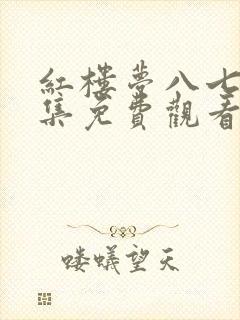 紅樓夢八七
集免費觀看
喽蟻望天